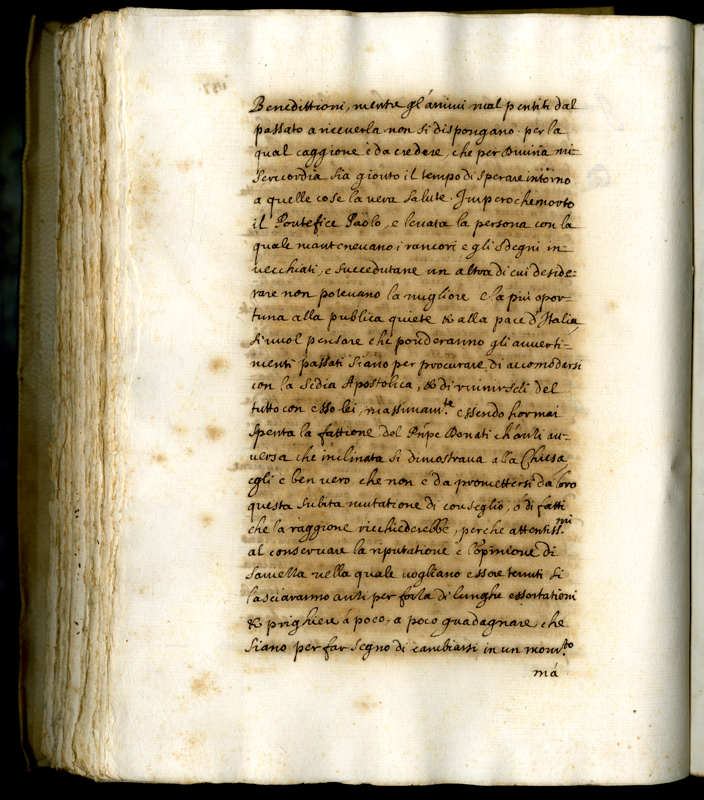 Benedittioni, mentre gl'animi mal pentiti dal
passato a riceverla non si dispongano. per la
qual caggione è da credere, che per Divina mi-
sericordia sia gionto il tempo di sperare intorno
a quelle cose la vera salute. Imperoche morto
il Pontefice Paolo, e levata la persona con la
quale mantenevano i rancori e gli sdegni in-
vecchiati, e succedutane un altra di cui deside-
rare non potevano la migliore e la più opor-
tuna alla publica quiete & alla pace d'Italia
si vuol pensare che ponderanno gli avverti-
menti passati siano per procurare di accomodarsi
con la Sedia Apostolica, & di riunirseli del
tutto con esso lei, massimam.te essendo hormai
spenta la fattione del Pñpe Donati ch'avli av-
versa che inclinata si dimostrava alla Chiesa
egli è ben vero che non è da promettersi da loro
questa subita mutatione di conseglio, ò di fatti
che la raggione ricchiederebbe, perche attentiss.mi
al conservare la riputatione e l'opinione di
nella quale vogliano essere tenuti si
lasciaranno anti per forla di lunghe essortationi
& prighiere à poco, a poco guadagnare che
siano per far segno di cambiarsi in un mom.to
mà